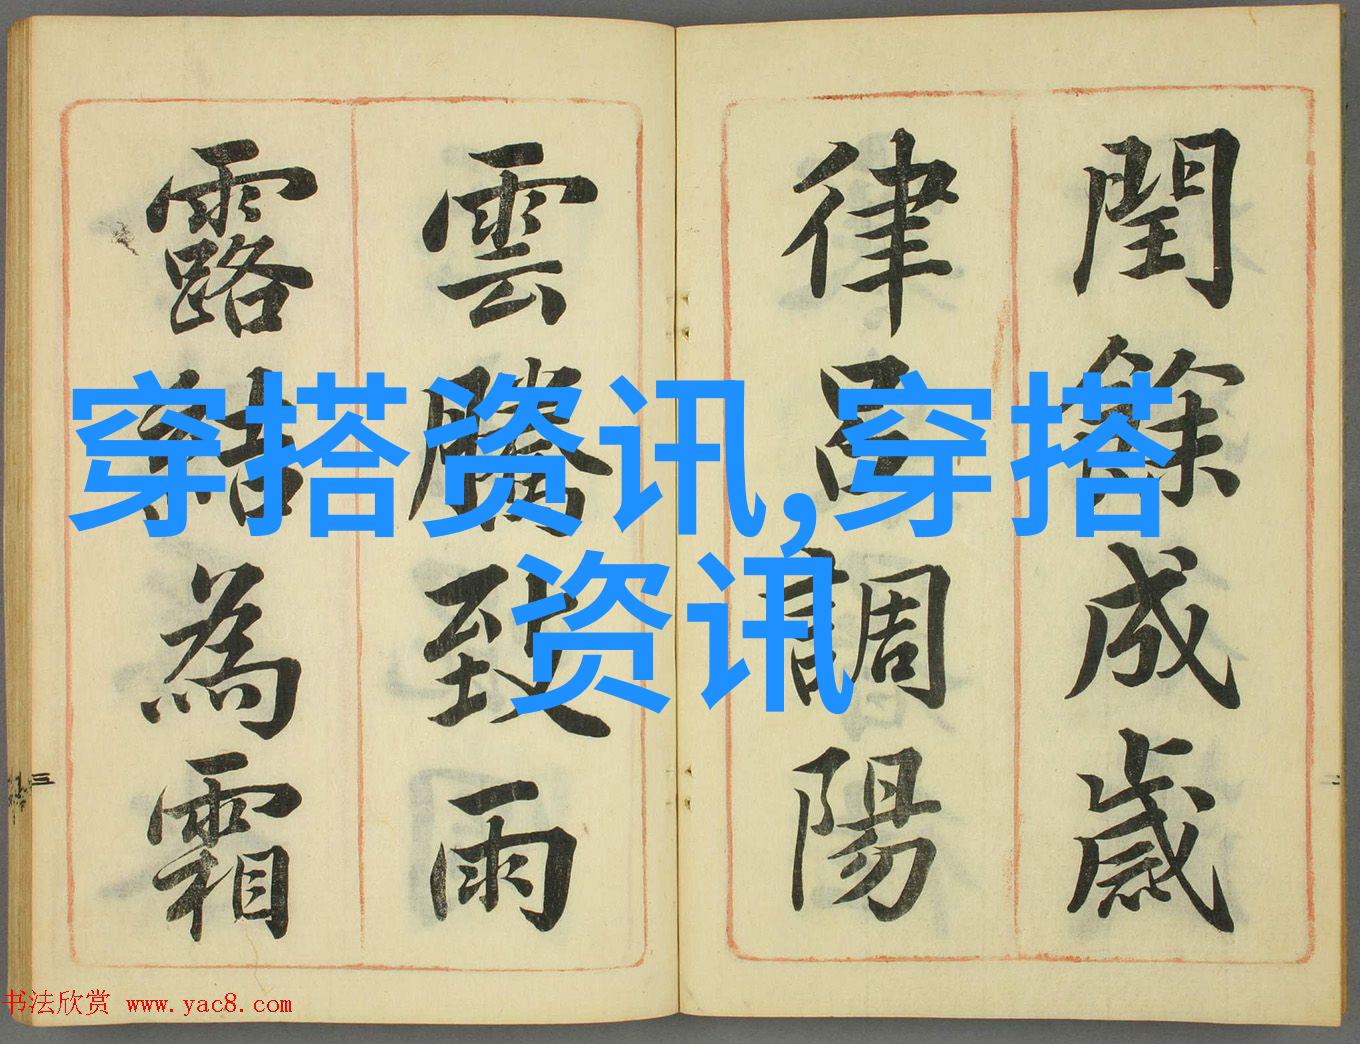 閏餘成歲
律呂調陽
雲騰致雨
露結為霜
穿搭资讯,穿搭
资讯
二
三
书法欣赏 www.yac8.com